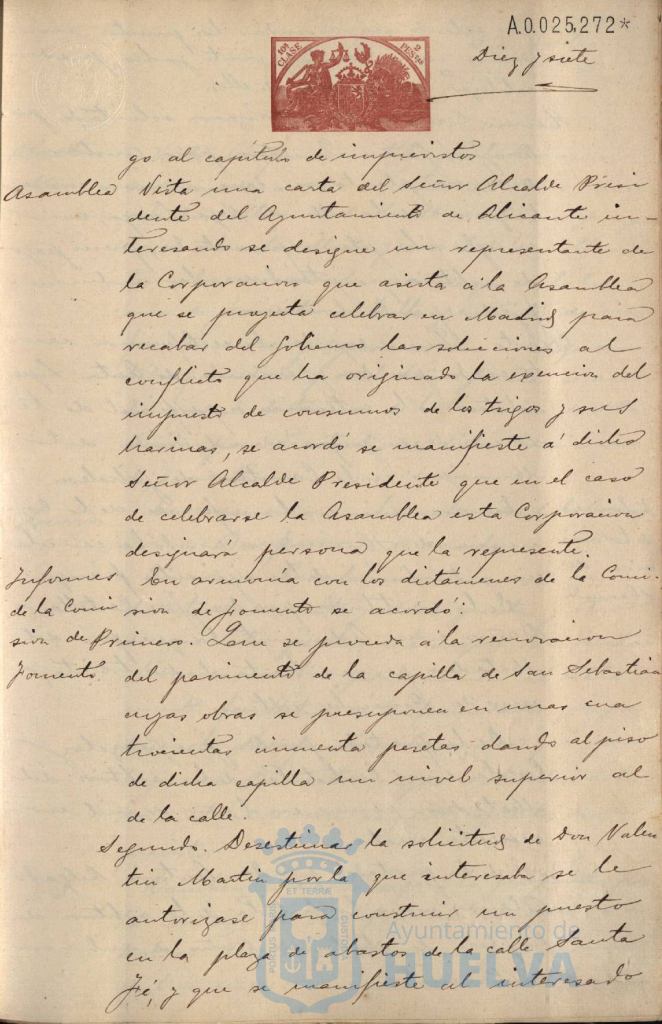 A.0.025,272*
10ª CLASE
2 PESETAS
Diez y siete
go al capítulo de imprevistos
Asamblea Vista una carta del Señor Alcalde Presi
dente del Ayuntamiento de Alicante in-
teresando se designe un representante de
la Corporacion que asista á la Asamblea
que se proyecta celebrar en Madrid para
recabar del Gobierno las soluciones al
conflicto que ha originado la exencion del
impuesto de consumos de los trigos y sus
harinas, se acordó se manifieste á dicho
Señor Alcalde Presidente que en el caso
de celebrarse la Asamblea esta Corporacion
designará persona que la represente.
Informes En armonía con los dictámenes de la Comi-
de la Comi sion de fomento se acordó:
sion de Primero. Que se proceda á la renovacion
Fomento. del pavimento de la capilla de San Sebastian
cuyas obras se presuponen en unas cua
trocientas cincuenta pesetas dando al piso
de dicha capilla un nivel superior al
de la calle.
Segundo. Desestimar la solicitud de Don Valen
tin Martin por la que interesaba se le
autorizase para construir un puesto
en la plaza de abastos de la calle Santa
Fé, y que se manifieste al interesado
ET TERRÆ
Ayuntamiento de
HUELVA